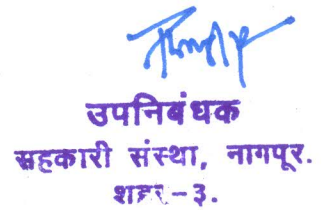 उपनिबंधक
सहकारी संस्था, नागपूर.
शहर-३.